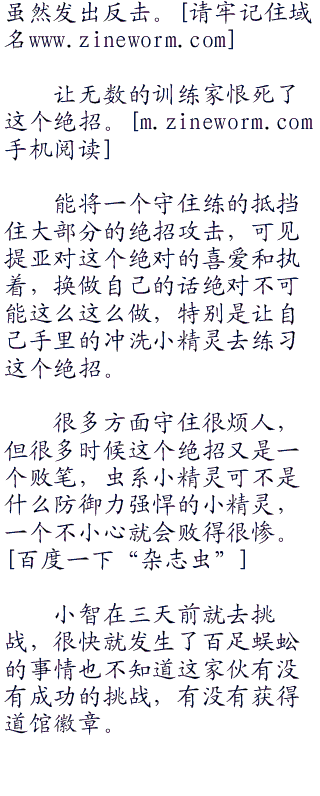 虽然发出反击。[请牢记住域
名www.zineworm.com]
让无数的训练家恨死了
这个绝招。[m.zineworm.com
手机阅读]
能将一个守住练的抵挡
住大部分的绝招攻击，可见
提亚对这个绝对的喜爱和执
着，换做自己的话绝对不可
能这么这么做，特别是让自
己手里的冲洗小精灵去练习
这个绝招。
很多方面守住很烦人，
但很多时候这个绝招又是一
个败笔，虫系小精灵可不是
什么防御力强悍的小精灵，
一个不小心就会败得很惨。
[百度一下“杂志虫”]
小智在三天前就去挑
战，很快就发生了百足蜈蚣
的事情也不知道这家伙有没
有成功的挑战，有没有获得
道馆徽章。